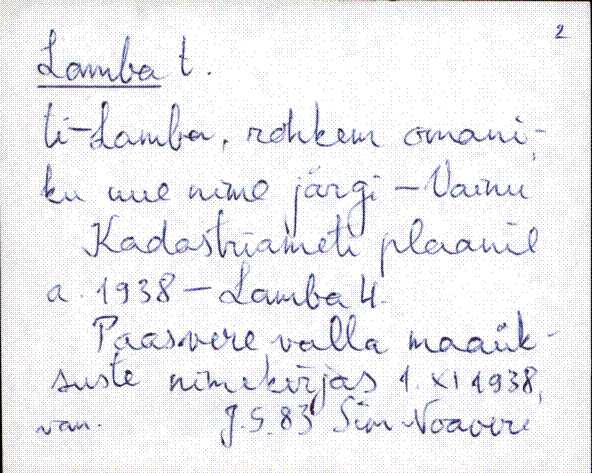 2
Lamba t.
ti-Lamba, rohkem omani-
ku uue nime järgi – Vainu
Kadastriameti plaanil
a. 1938 – Lamba 4.
Paasvere valla maaük-
suste nimekirjas 1. XI 1938,
van. J.S. 83 Sim